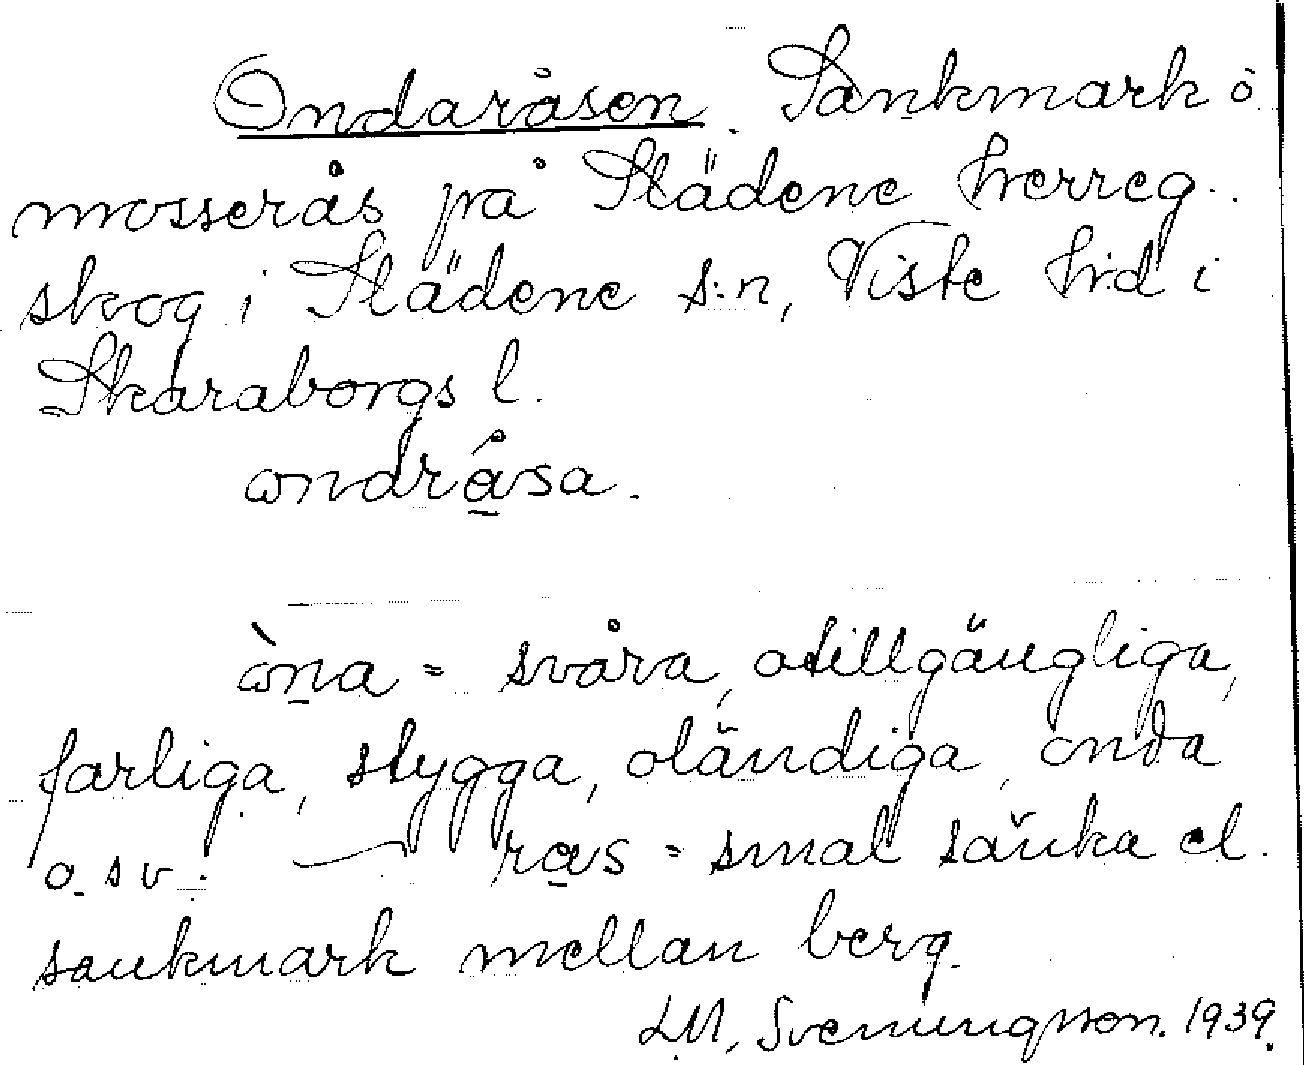 Ondaråsen. Sankmark o.
mosserås på Slädene herreg.
skog i Slädene s:n, Viste hrd i
Skaraborgs l.
ondråsa.
òna = svåra, otillgängliga,
farliga, stygga, oländiga, onda
o. s v. — ras = smal sänka el.
sankmark mellan berg.
L.M. Svenungsson. 1939.